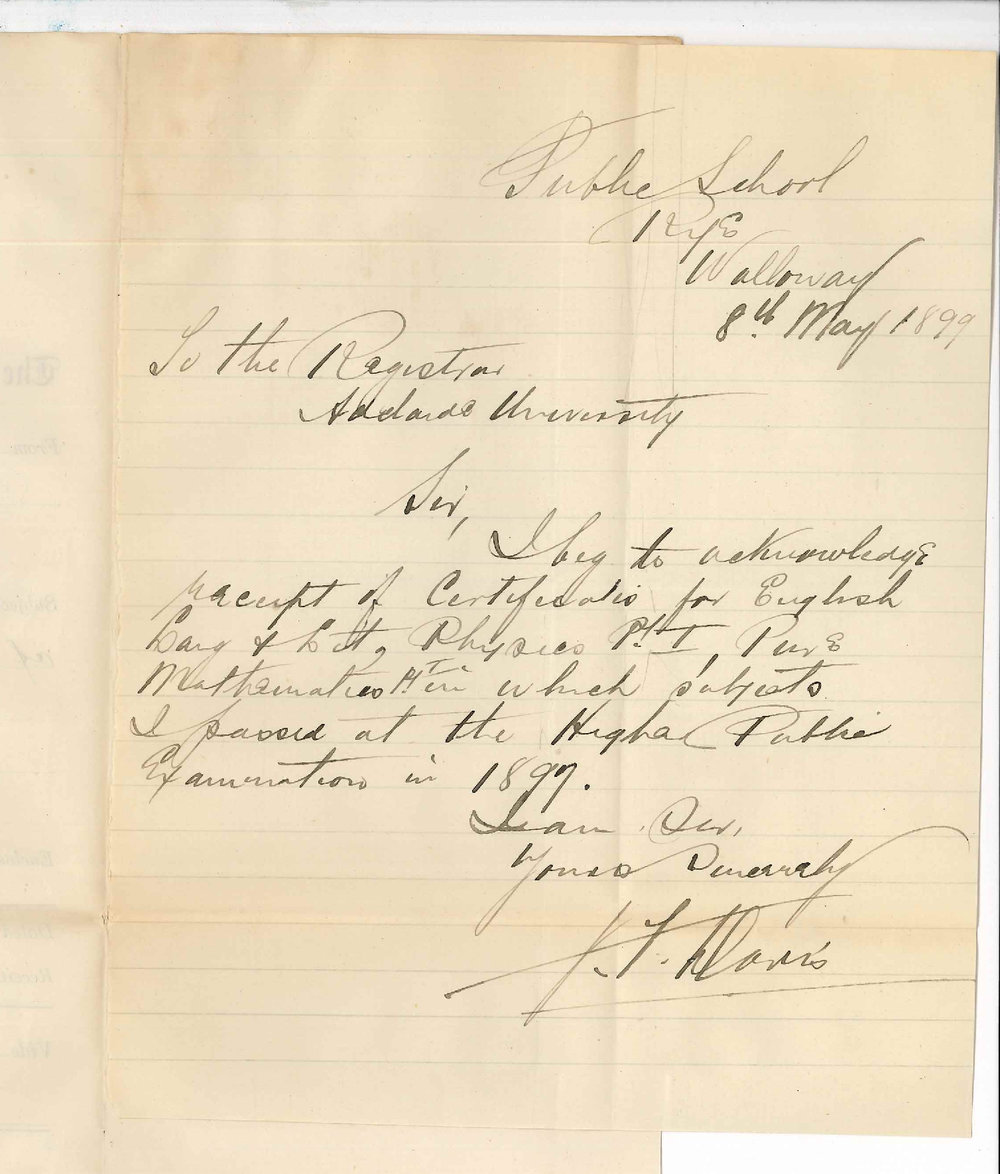 Public School
Rye
Walloway
8th May 1899
To the Registrar
Adelaide University
Sir,
I beg to acknowledge
receipt of Certificates for English
Lang & Lit, Physics Pt I, Pure
Mathematics Pt I in which subjects
I passed at the Higher Public
Examination in 1897.
I am Sir,
Yours Sincerely
J. T. Davis
The
From